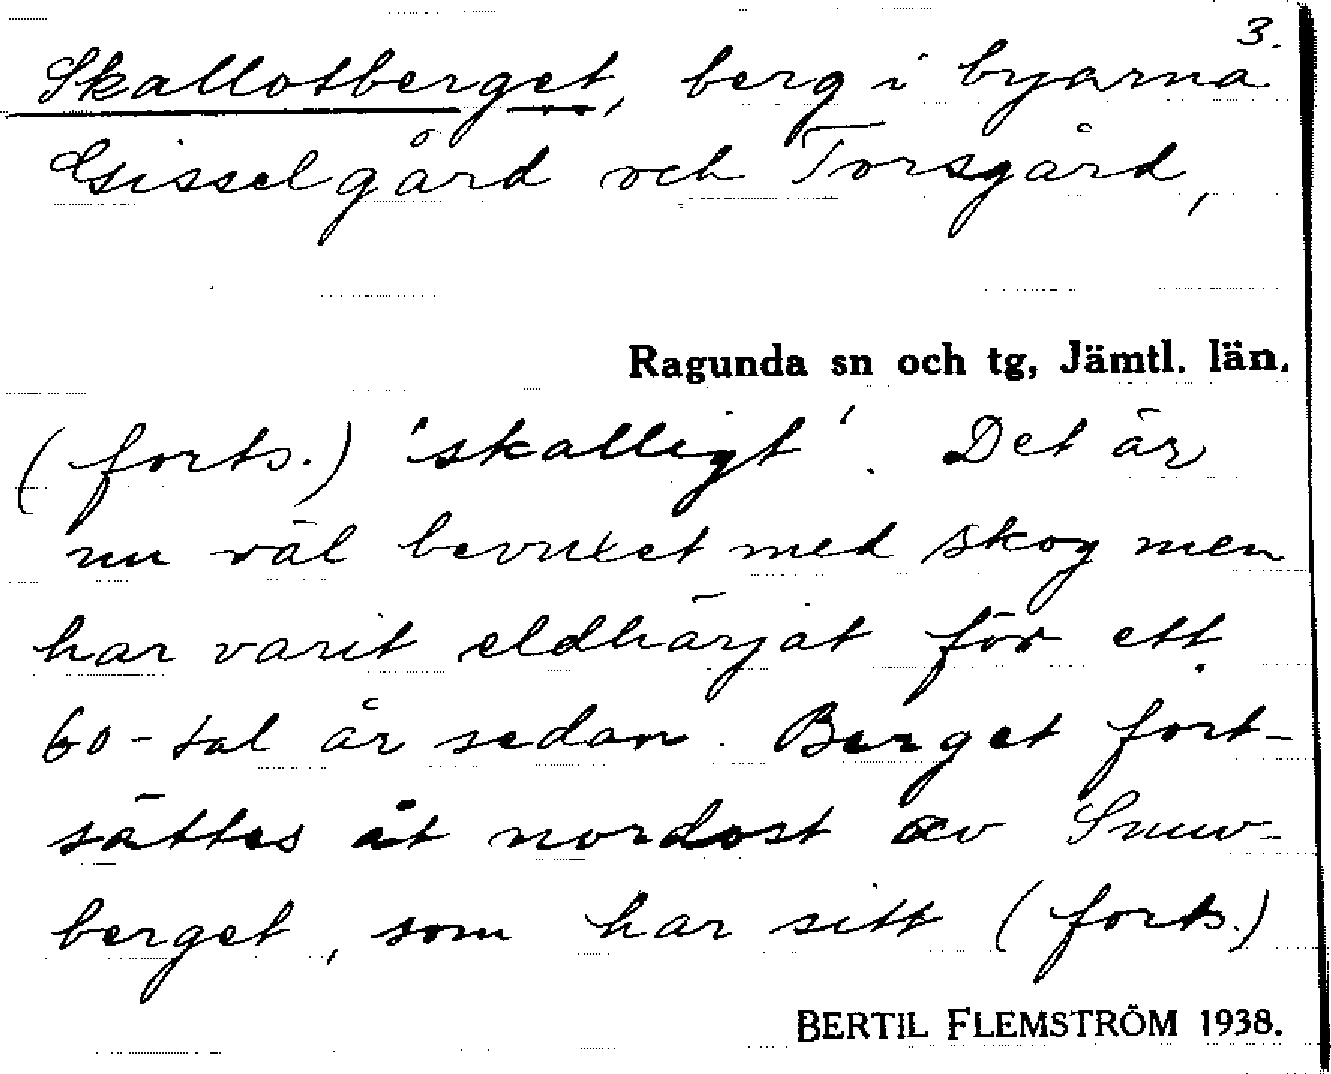 3.
Skallotberget, berg i byarna
Gisselgård och Torsgård,
Ragunda sn och tg, Jämtl. län.
(forts.) 'skalligt'. Det är
nu väl bevuxet med skog men
har varit eldhärjat för ett
60-tal år sedan. Berget fort-
sättes åt nordost av
berget, som har sitt (forts.)
BERTIL FLEMSTRÖM 1938.